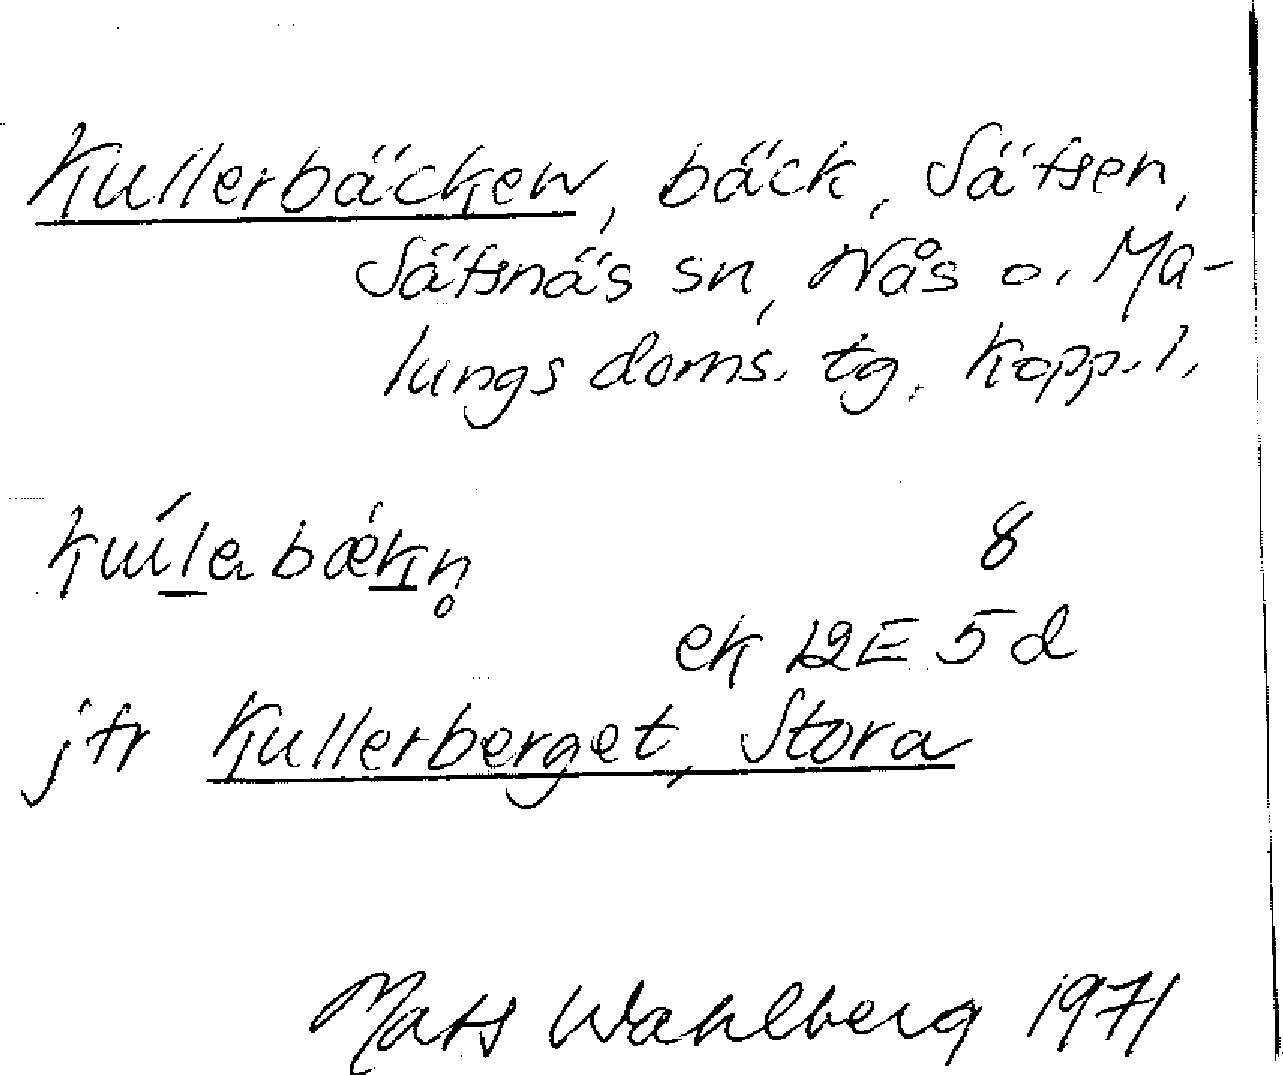 Kullerbäcken, bäck, Sätsen,
Sätsnäs sn, Nås o. Ma-
lungs doms. tg. Kopp. l.
8
ek 12E 5d
jfr Kullerberget, Stora
Mats Wahlberg 1971